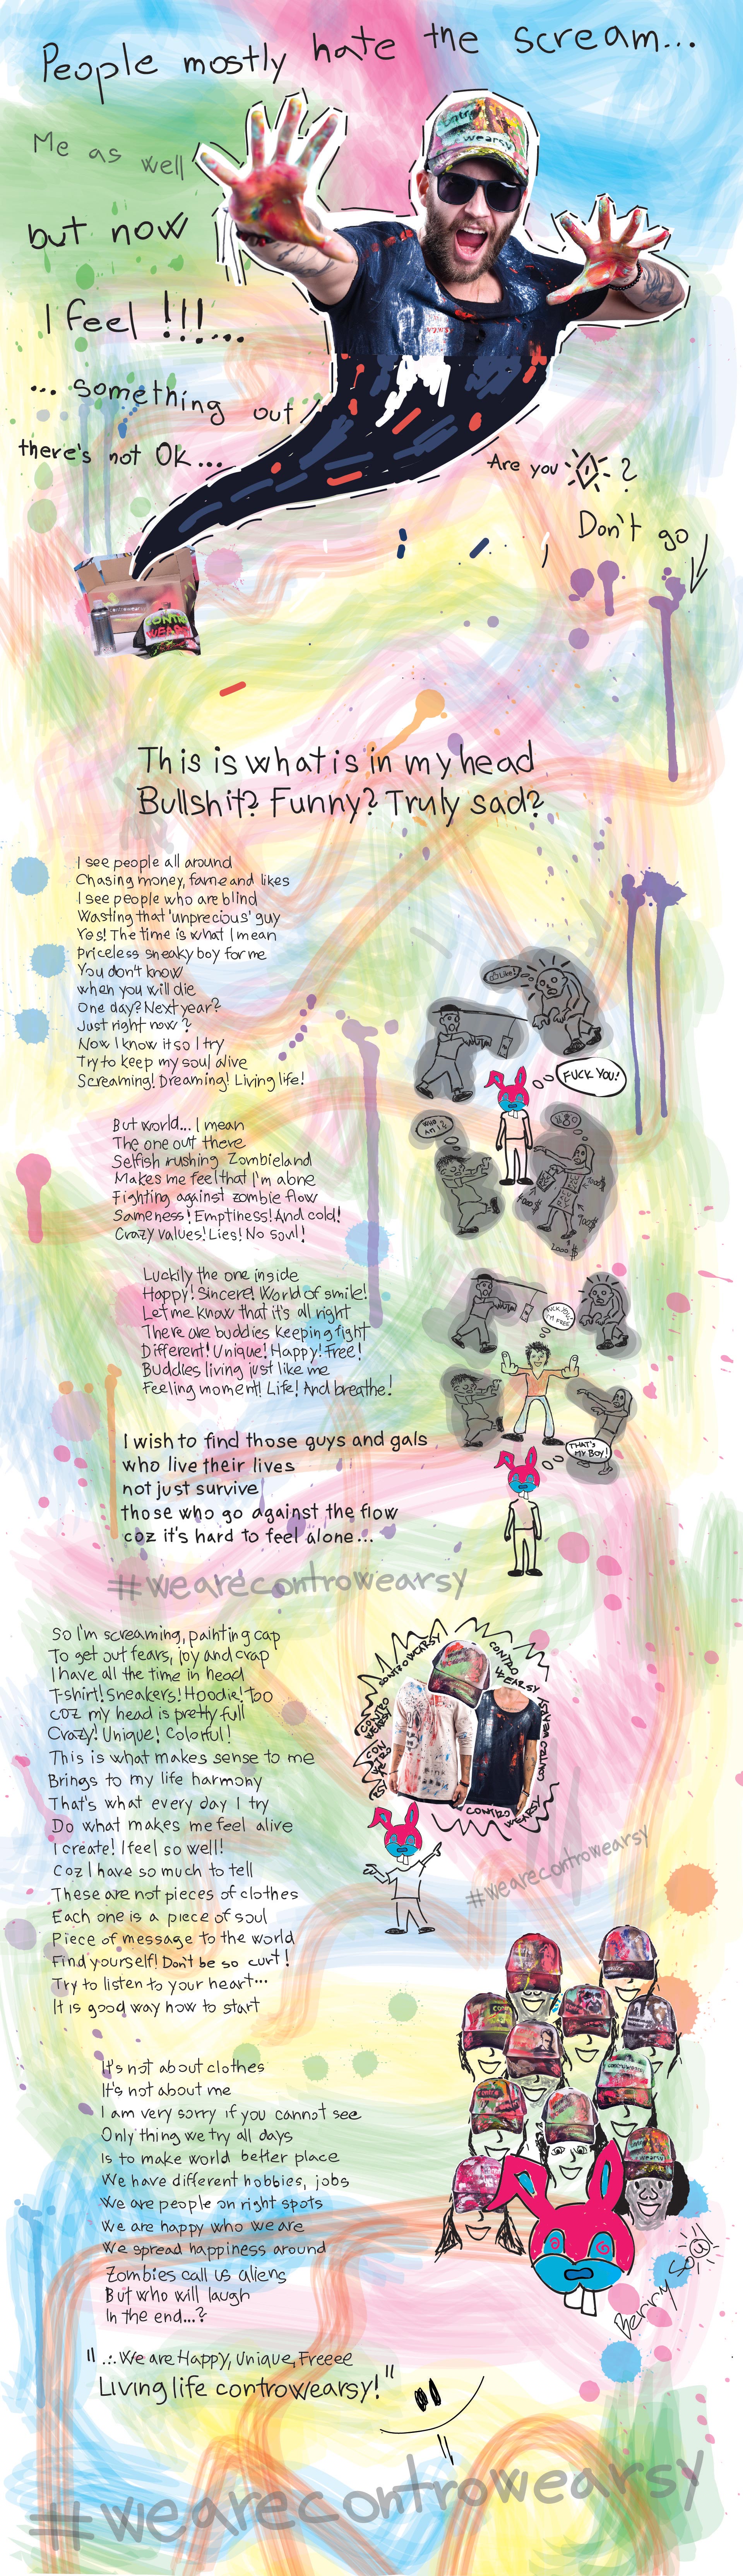 People mostly hate the scream...
Me as well
but now
I feel !!!...
... something out
there's not OK...
Are you ?
Don't go
Contro
wearsy
CONTRO
WEARS
This is what is in my head
Bullshit? Funny? Truly sad?
I see people all around
Chasing money, fame and likes
I see people who are blind
Wasting that 'unprecious' guy
Yes! The time is what I mean
Priceless sneaky boy for me
You don't know
when you will die
One day? Next year?
Just right now?
Now I know it so I try
Try to keep my soul alive
Screaming! Dreaming! Living life!
Like!
FUCK YOU!
WHO AM I?
1000$
But world... I mean
The one out there
Selfish rushing Zombieland
Makes me feel that I'm alone
Fighting against zombie flow
Sameness! Emptiness! And cold!
Crazy values! Lies! No soul!
Luckily the one inside
Happy! Sincere! World of smile!
Let me know that it's all right
There are buddies keeping fight
Different! Unique! Happy! Free!
Buddies living just like me
Feeling moment! Life! And breathe!
FUCK YOU!
I'M FREE
THAT'S
MY BOY!
I wish to find those guys and gals
who live their lives
not just survive
those who go against the flow
coz it's hard to feel alone...
#wearecontrowearsy
So I'm screaming, painting cap
To get out fears, joy and crap
I have all the time in head
T-shirt! Sneakers! Hoodie! Too
coz my head is pretty full
Crazy! Unique! Colorful!
This is what makes sense to me
Brings to my life harmony
That's what every day I try
Do what makes me feel alive
I create! I feel so well!
Coz I have so much to tell
These are not pieces of clothes
Each one is a piece of soul
Piece of message to the world
Find yourself! Don't be so curt!
Try to listen to your heart...
It is good way how to start
CONTROWEARSY
CONTRO
WEARSY
CONTRO
WEARSY
CONTROWEARSY
CON
TRO
WEARSY
CONTRO
WEARSY
#wearecontrowearsy
It's not about clothes
It's not about me
I am very sorry if you cannot see
Only thing we try all days
Is to make world better place
We have different hobbies, jobs
We are people on right spots
We are happy who we are
We spread happiness around
Zombies call us aliens
But who will laugh
In the end...?
Berry So@l
"...We are Happy, Unique, Freeee
Living life controwearsy!"
#wearecontrowearsy